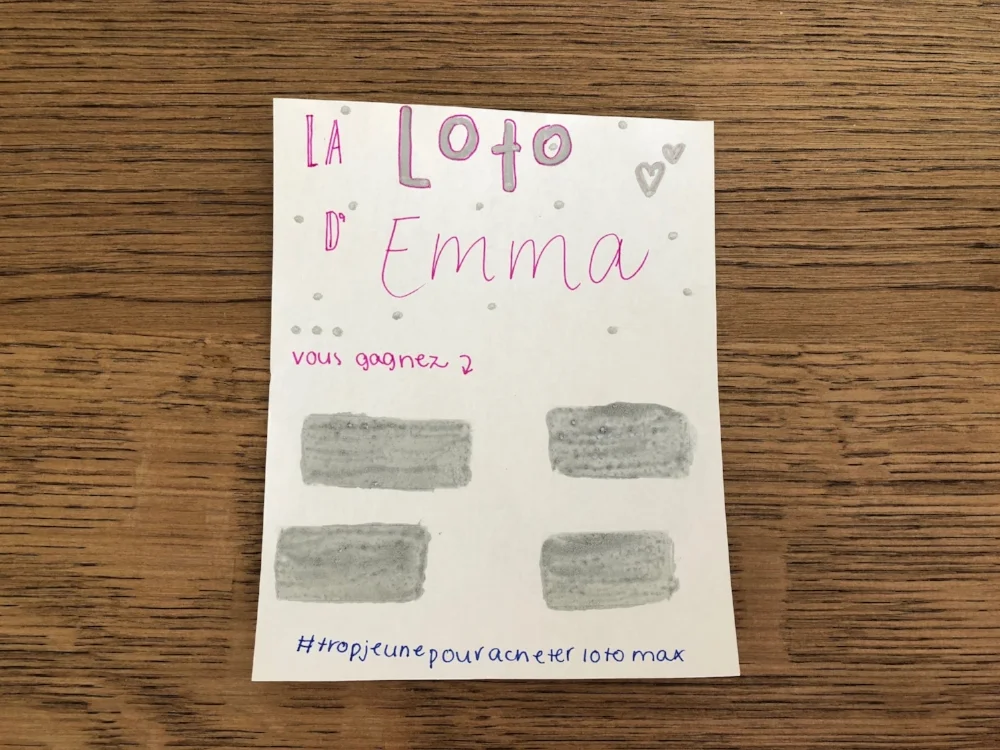 LA Loto
D' Emma
vous gagnez
#tropjeunepouracheter loto max